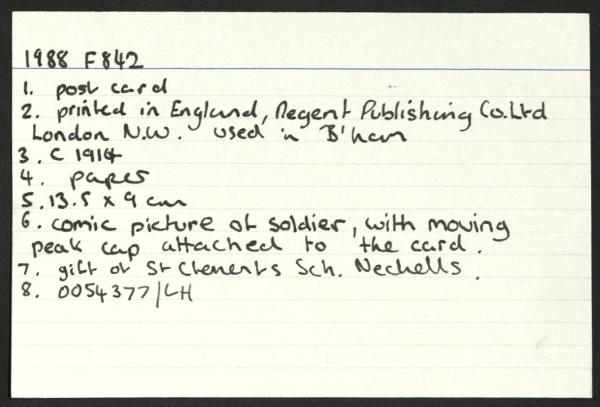 1988 F842
1. post card
2. printed in England, Regent Publishing Co. Ltd
London N.W. used in B'ham
3. C 1914
4. paper
5. 13.5 x 9 cm
6. comic picture of soldier, with moving
peak cap attached to the card.
7. gift of St Clements Sch. Nechells.
8. 0054377/LH